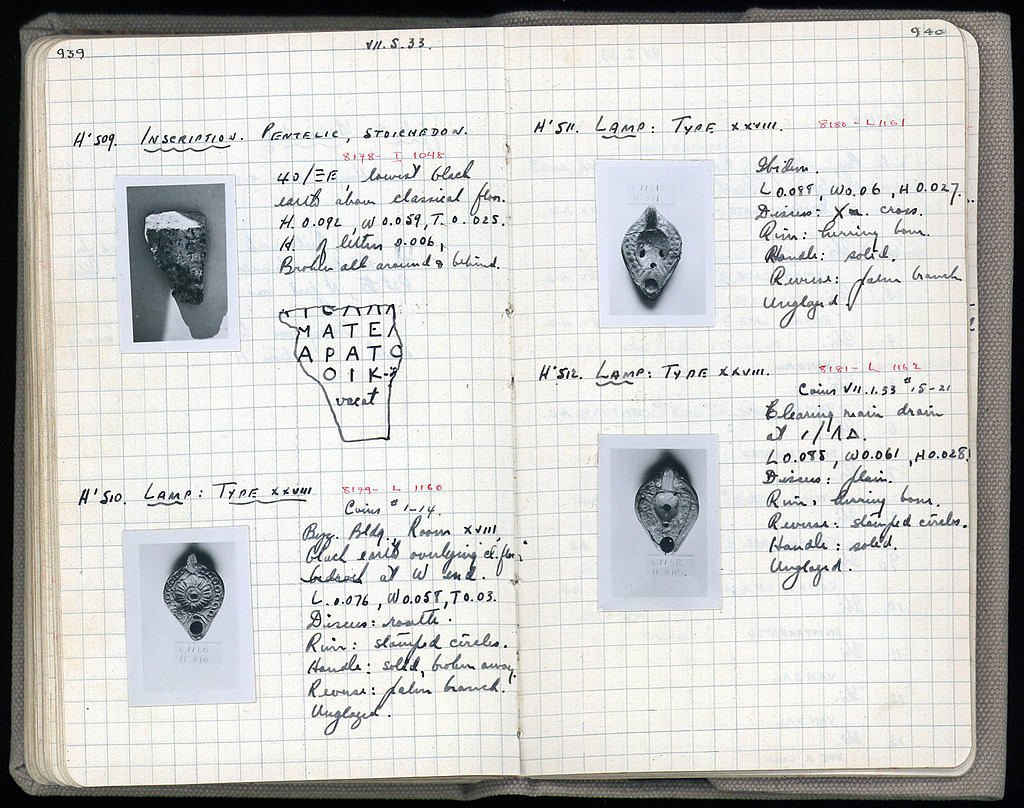 939
VII.5.33.
H'509. INSCRIPTION. PENTELIC, STOICHEDON.
8178- I 1048
40/ΞΕ, lowest black
earth above classical floor.
H. 0.092, W 0.059, T. 0.025.
H. of letters 0.006,
Broken all around & behind.
ΜΑΤΕΛ
ΑΡΑΤΟ
ΟΙΚ
vacat
H'510. LAMP: TYPE XXVIII
8179- L 1160
Coins #1-14.
Byz. Bldg. Room XVIII,
black earth overlying cl. floor,
bedrock at W end.
L. 0.076, W 0.058, T 0.03.
Discus: rosette.
Rim: stamped circles.
Handle: solid, broken away.
Reverse: palm branch.
Unglazed.
940
H'511. LAMP: TYPE XXVIII.
8180- L 1161
Ibidem.
L 0.088, W 0.06, H 0.027.
Discus: Xn. cross.
Rim: herring bone.
Handle: solid.
Reverse: palm branch
Unglazed.
H'512. LAMP: TYPE XXVIII.
8181- L 1162
Coins VII.1.33 #15-21
Clearing main drain
at /ΛΔ.
L 0.085, W 0.061, H 0.028.
Discus: plain.
Rim: herring bone.
Reverse: stamped circles.
Handle: solid.
Unglazed.